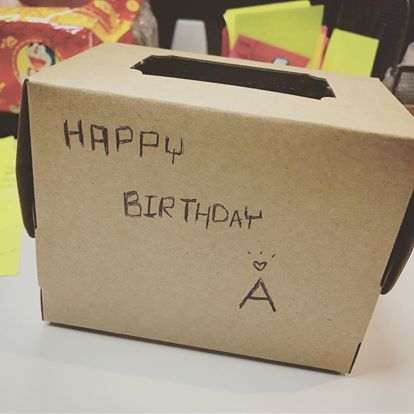 HAPPY
BIRTHDAY
A